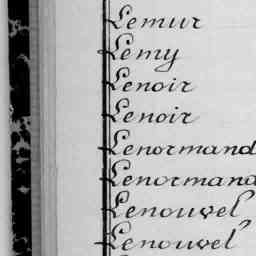 Lemur
Lemy
Lenoir
Lenoir
Lenormand
Lenormand
Lenouvel
Lenouvel